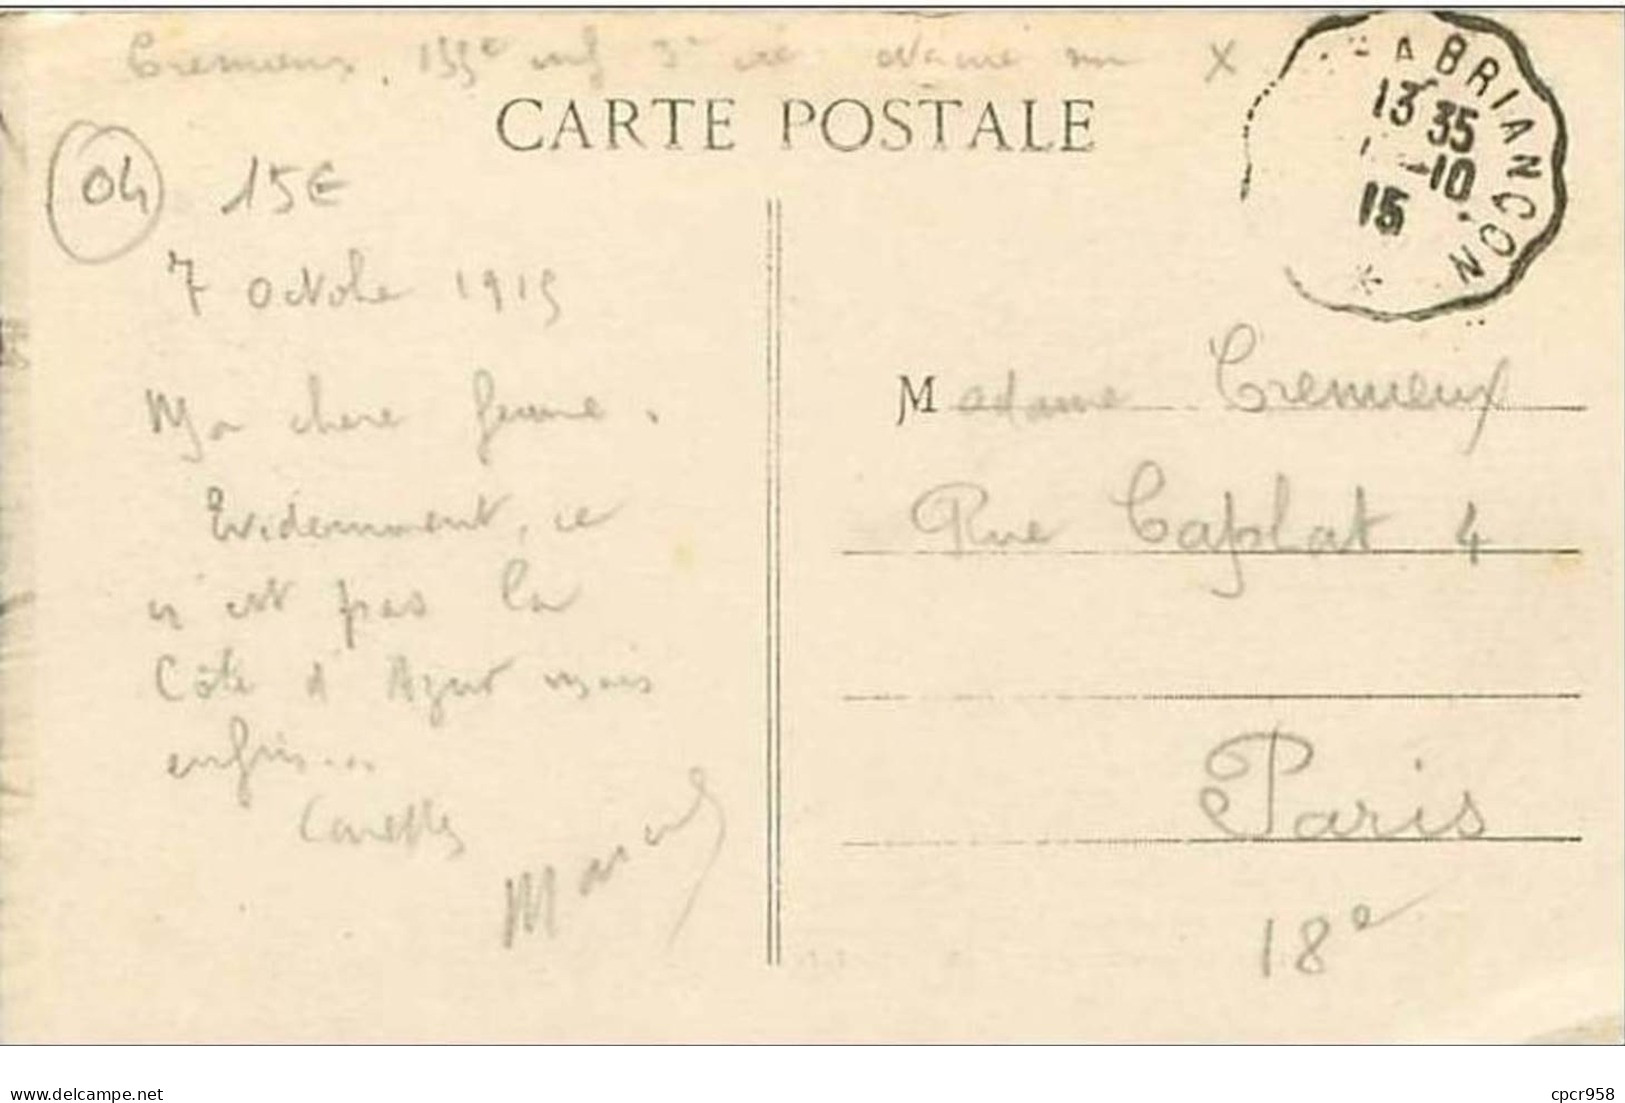 Cremieux. 155e inf 3e
X
CARTE POSTALE
A BRIANÇON
13 35
-10
15
*
04
15€
7 octobre 1915
Ma chere femme.
Evidemment, ce
n'est pas la
Côte d'Azur mais
enfin...
Marcel
Madame Cremieux
Rue Caplat 4
Paris
18e
www.delcampe.net
cpcr958